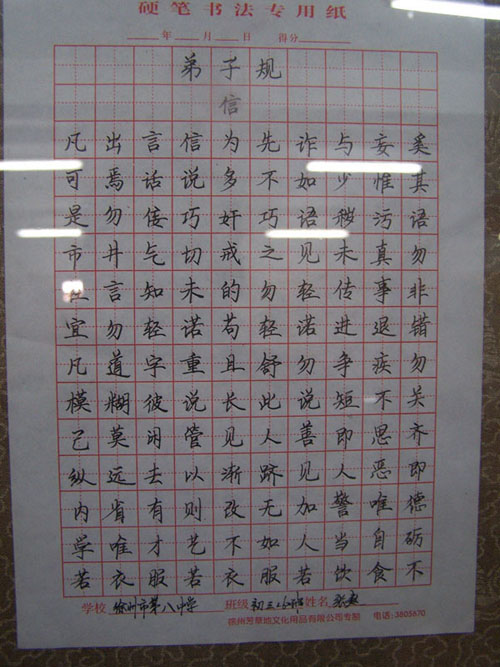 硬笔书法专用纸
年 月 日 得分
弟子规
信
凡出言信为先诈与妄奚
可焉话说多不如少惟其
是勿佞巧奸巧语秽污语
市井气切戒之见未真勿
言知未的勿轻传事非
宜勿轻诺苟轻诺进退错
凡道字重且舒勿争疾勿
模糊彼说长此说短不关
己莫闲管见人善即思齐
纵远去以渐跻见人恶即
内省有则改无加警唯德
学唯才艺不如人当自砺
若衣服若衣服若饮食不
学校 徐州市第八中学 班级 初三 班 姓名 张
徐州芳草地文化用品有限公司专制 电话:3805870